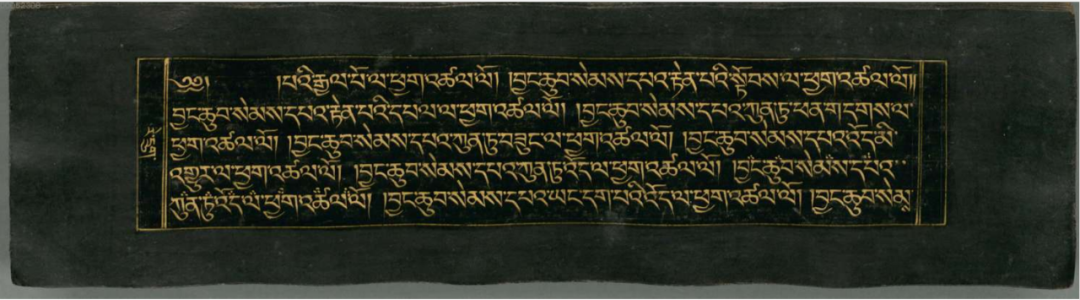 ༄༅། །པའི་རྒྱལ་པོ་ལ་ཕྱག་འཚལ་ལོ། །བྱང་ཆུབ་སེམས་དཔའ་རྟེན་པའི་སྟོབས་ལ་ཕྱག་འཚལ་ལོ།།
བྱང་ཆུབ་སེམས་དཔའ་རྟེན་པའི་དཔལ་ལ་ཕྱག་འཚལ་ལོ། །བྱང་ཆུབ་སེམས་དཔའ་ཀུན་ཏུ་ཕན་གདགས་ལ་
ཕྱག་འཚལ་ལོ། །བྱང་ཆུབ་སེམས་དཔའ་ཀུན་ཏུ་བཟུང་ལ་ཕྱག་འཚལ་ལོ། །བྱང་ཆུབ་སེམས་དཔའ་འོད་མི་
འགྱུར་ལ་ཕྱག་འཚལ་ལོ། །བྱང་ཆུབ་སེམས་དཔའ་ཀུན་ཏུ་འོད་ལ་ཕྱག་འཚལ་ལོ། །བྱང་ཆུབ་སེམས་དཔའ་
ཀུན་ཏུ་འོད་ལ་ཕྱག་འཚལ་ལོ། །བྱང་ཆུབ་སེམས་དཔའ་ཡང་དག་པའི་འོད་ལ་ཕྱག་འཚལ་ལོ། །བྱང་ཆུབ་སེམ